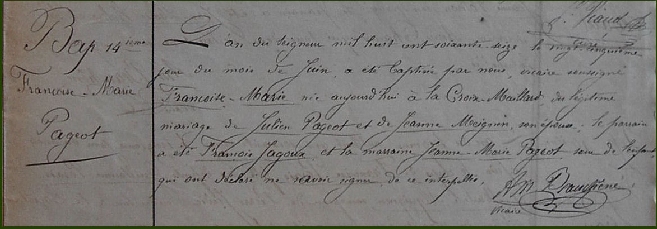 Bap 14ième
Françoise-Marie
Pageot
L'an du Seigneur mil huit cent soixante-seize le vingt cinquième
jour du mois de Juin, a été baptisée par nous, vicaire soussigné
Françoise-Marie née aujourd'hui à la Croix-Maillard du légitime
mariage de Julien Pageot et de Jeanne Meignen, son épouse; le parrain
a été François Jagoux et la marraine Jeanne-Marie Pageot sœur de l'enfant,
qui ont déclaré ne savoir signer de ce interpellés.